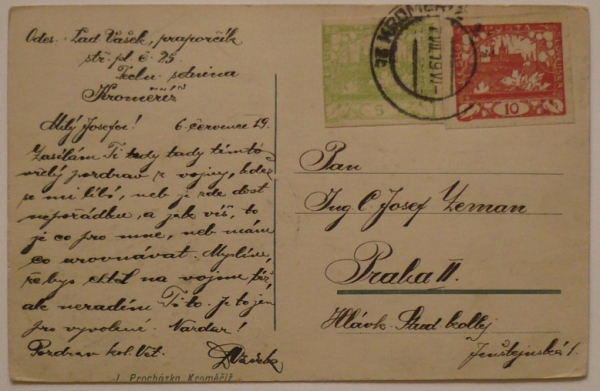 Odes. Lad Vašek, praporčík
stř. pl. č. 25
Techn. setnina
Kroměříž
Milý Josefe! 6. července 19.
Zasílám Ti tedy tady tímto
vřelý pozdrav z vojny, kde
se mi líbí, neb je zde dost
nepořádku, a jak víš, to
je co pro mne, neb mám
co urovnávat. Myslím,
že bys chtěl na vojnu též,
ale neradím Ti to. Je to jen
pro vyvolené. Nazdar!
Pozdrav kol. Vát.
LVašek
J. Procházka Kroměříž
KROMĚŘÍŽ
5
10
Pan
Ing C. Josef Zeman
Praha II.
Hlávk. Stud kollej
Jenštejnská 1.